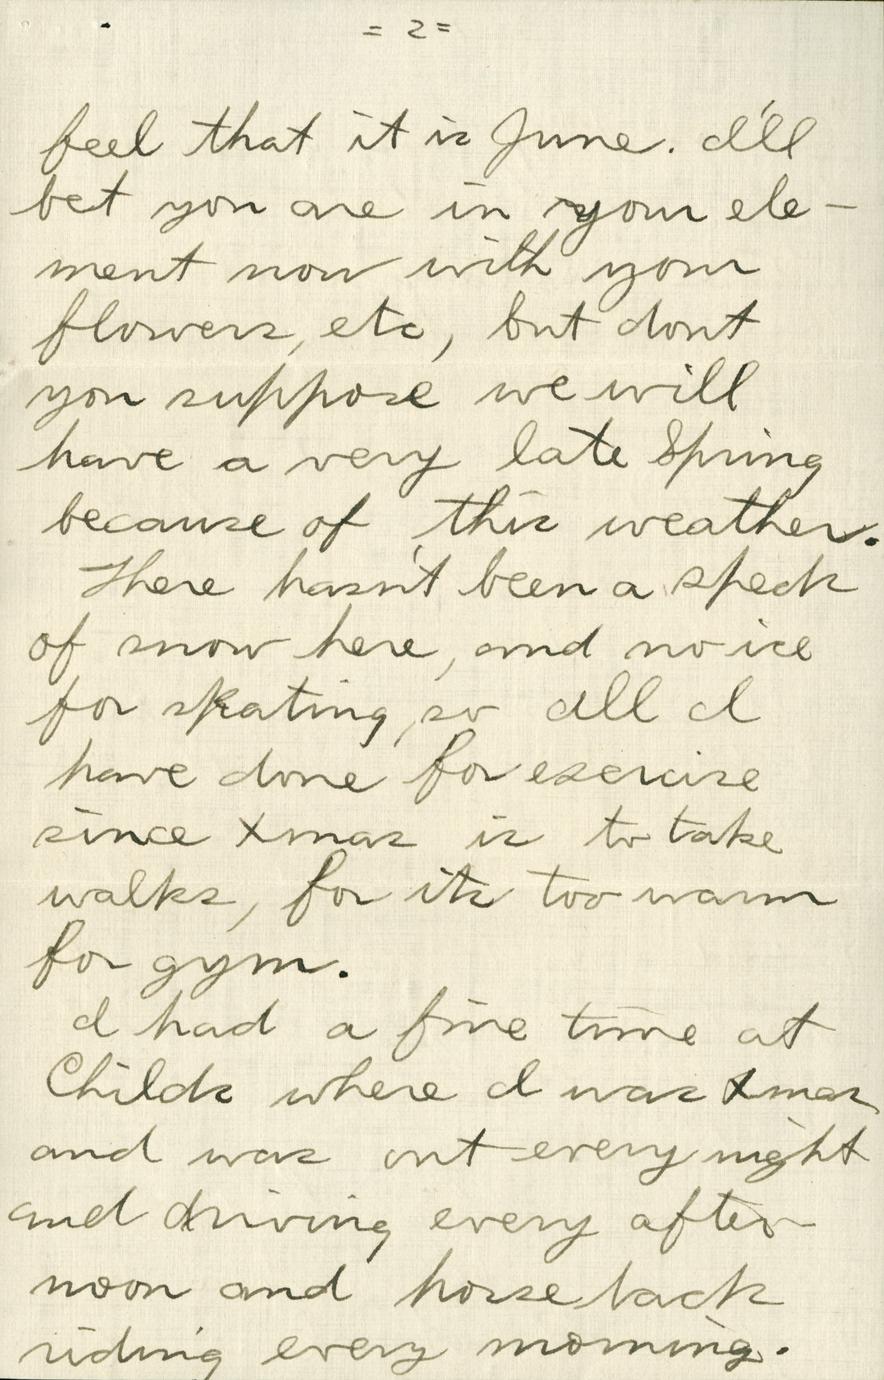 = 2 =
feel that it is June. I'll
bet you are in your ele-
ment now with your
flowers, etc, but dont
you suppose we will
have a very late Spring
because of this weather.
There hasn't been a speck
of snow here, and no ice
for skating, so all I
have done for exercise
since Xmas is to take
walks, for its too warm
for gym.
I had a fine time at
Childs where I was Xmas
and was out every night
and driving every after-
noon and horse back
riding every morning.